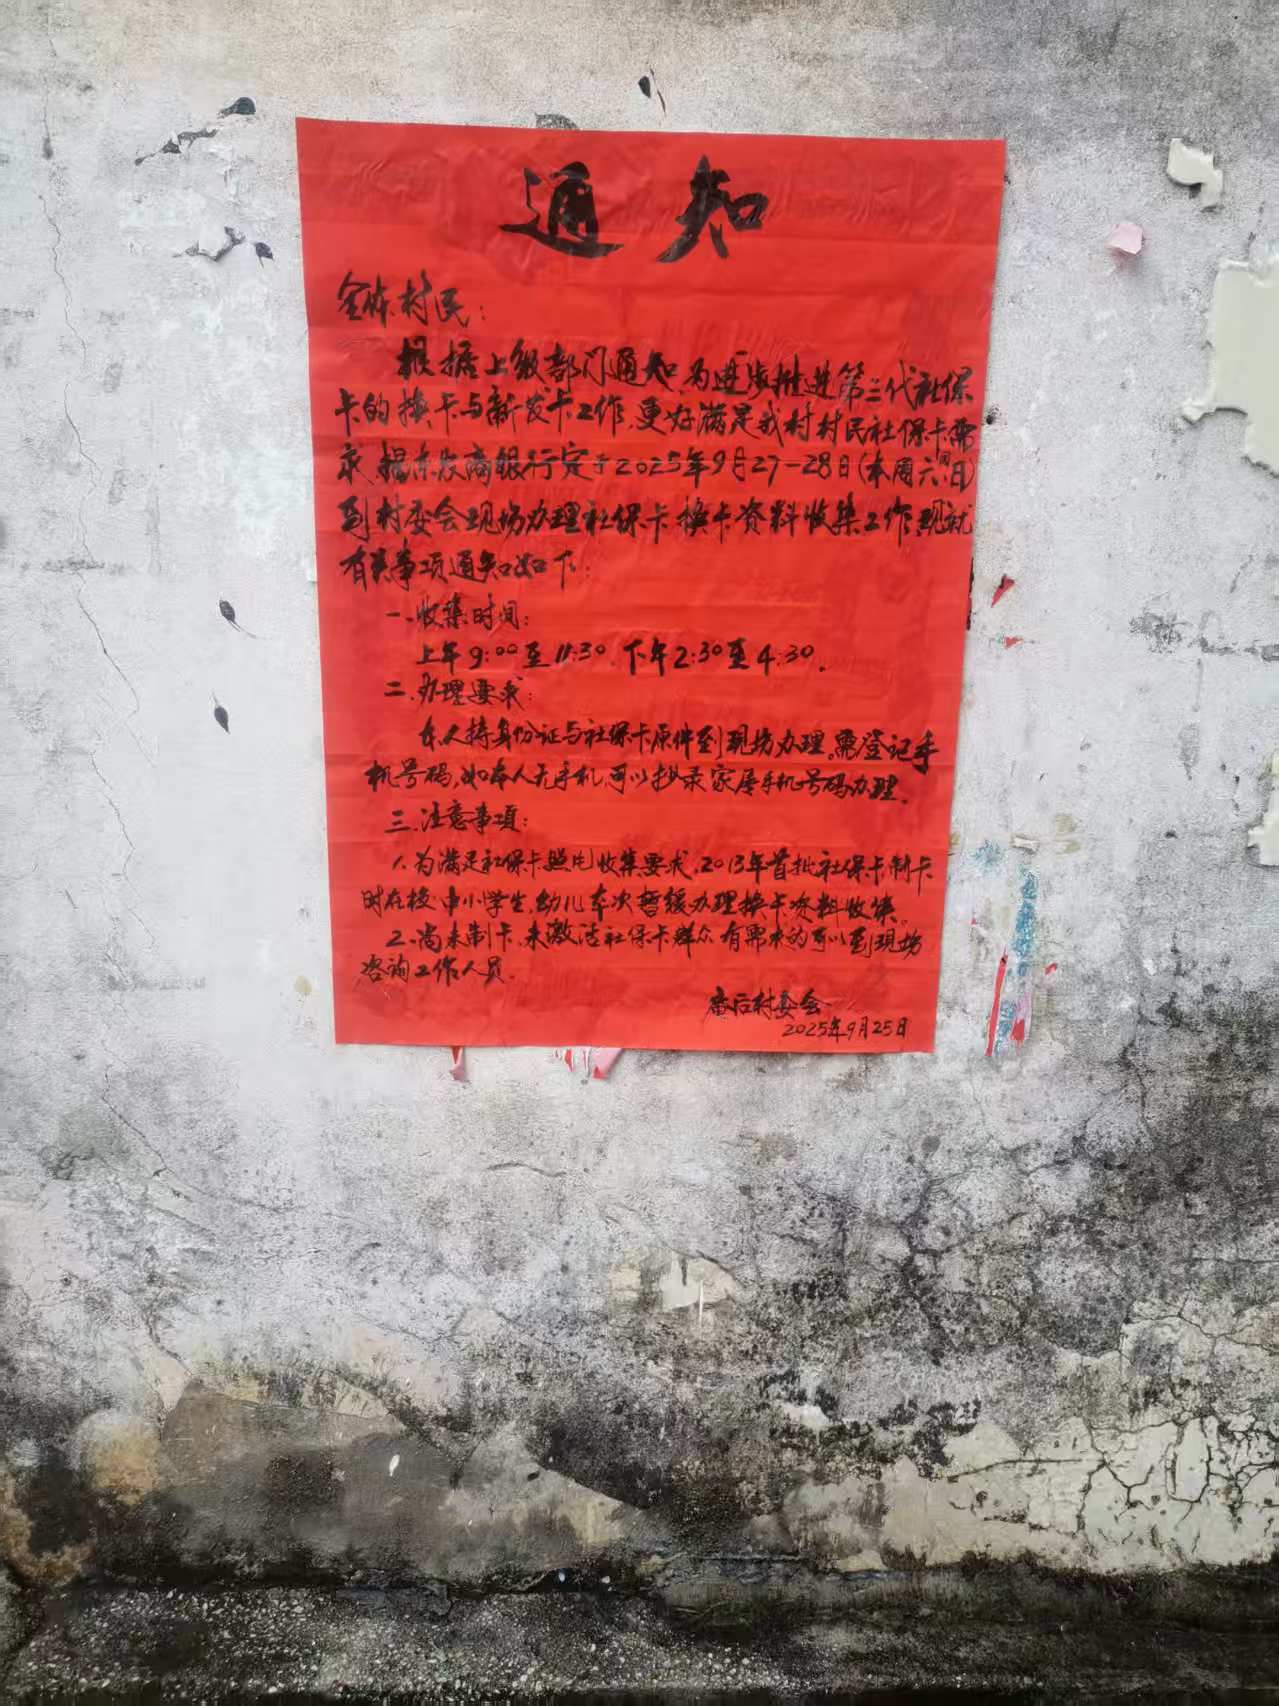 通知
全体村民：
根据上级部门通知，为进步推进第三代社保
卡的换卡与新发卡工作，更好满足我村村民社保卡需
求，揭东农商银行定于2025年9月27-28日(本周六、周日)
到村委会现场办理社保卡换卡资料收集工作，现就
有关事项通知如下：
一、收集时间：
上午9:00至11:30，下午2:30至4:30。
二、办理要求：
本人持身份证与社保卡原件到现场办理。需登记手
机号码，如本人无手机，可以抄录家属手机号码办理。
三、注意事项：
1、为满足社保卡照片收集要求，2013年首批社保卡制卡
时在校中小学生、幼儿本次暂缓办理换卡资料收集。
2、尚未制卡、未激活社保卡群众，有需求的可以到现场
咨询工作人员。
后村委会
2025年9月25日